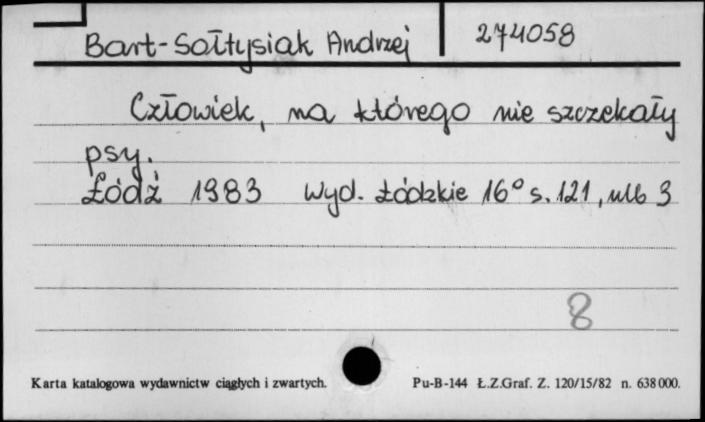 Bart-Sołtysiak Andrzej 274058
Człowiek, na którego nie szczekały
psy.
Łódź 1983 Wyd. Łódzkie 16° s. 121, nlb 3
8
Karta katalogowa wydawnictw ciągłych i zwartych. Pu-B-144 Ł.Z.Graf. Z. 120/15/82 n. 638000.